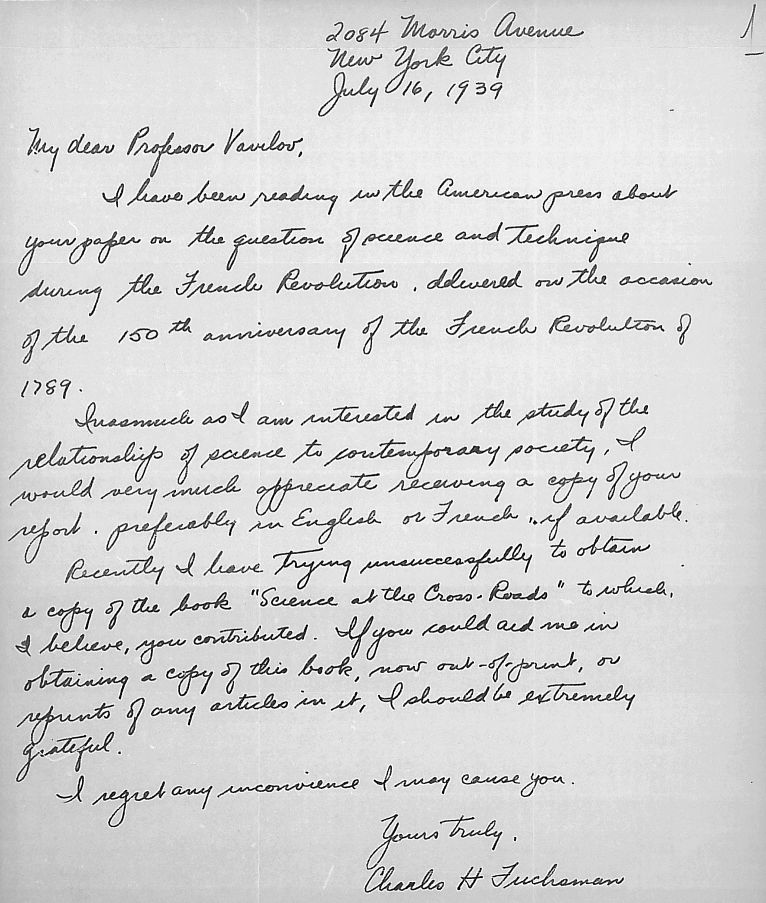 1
2084 Morris Avenue
New York City
July 16, 1939
My dear Professor Vavilov,
I have been reading in the American press about
your paper on the question of science and technique
during the French Revolution, delivered on the occasion
of the 150th anniversary of the French Revolution of
1789.
Inasmuch as I am interested in the study of the
relationship of science to contemporary society, I
would very much appreciate receiving a copy of your
report, preferably in English or French, if available.
Recently I have trying unsuccessfully to obtain
a copy of the book "Science at the Cross-Roads" to which,
I believe, you contributed. If you could aid me in
obtaining a copy of this book, now out-of-print, or
reprints of any articles in it, I should be extremely
grateful.
I regret any inconvience I may cause you.
Yours truly,
Charles H Fuchsman